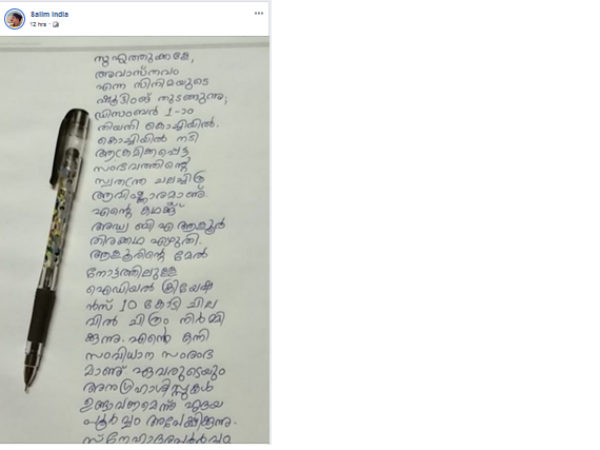 Salim India
12 hrs ·
സുഹൃത്തുക്കളേ,
അവാസ്തവം
എന്ന സിനിമയുടെ
ഷൂട്ടിംങ് തുടങ്ങുന്നു;
ഡിസംബർ 1-ാം
തിയതി കൊച്ചിയിൽ.
കൊച്ചിയിൽ നടി
ആക്രമിക്കപ്പെട്ട
സംഭവത്തിന്റെ
സ്വതന്ത്ര ചലച്ചിത്ര
ആവിഷ്ക്കാരമാണ്.
എന്റെ കഥക്ക്
അഡ്വ ബി എ ആളൂർ
തിരക്കഥ എഴുതി.
ആളൂരിന്റെ മേൽ
നോട്ടത്തിലുള്ള
ഐഡിയൽ ക്രിയേഷ
ൻസ് 10 കോടി ചില
വിൽ ചിത്രം നിർമ്മി
ക്കുന്നു. എന്റെ കന്നി
സംവിധാന സംരംഭ
മാണ് ഏവരുടെയും
അനുഗ്രഹാശിസ്സുകൾ
ഉണ്ടാവണമെന്ന് ഹൃദയ
പൂർവ്വം അപേക്ഷിക്കുന്നു.
സ്നേഹാദരപൂർവ്വം